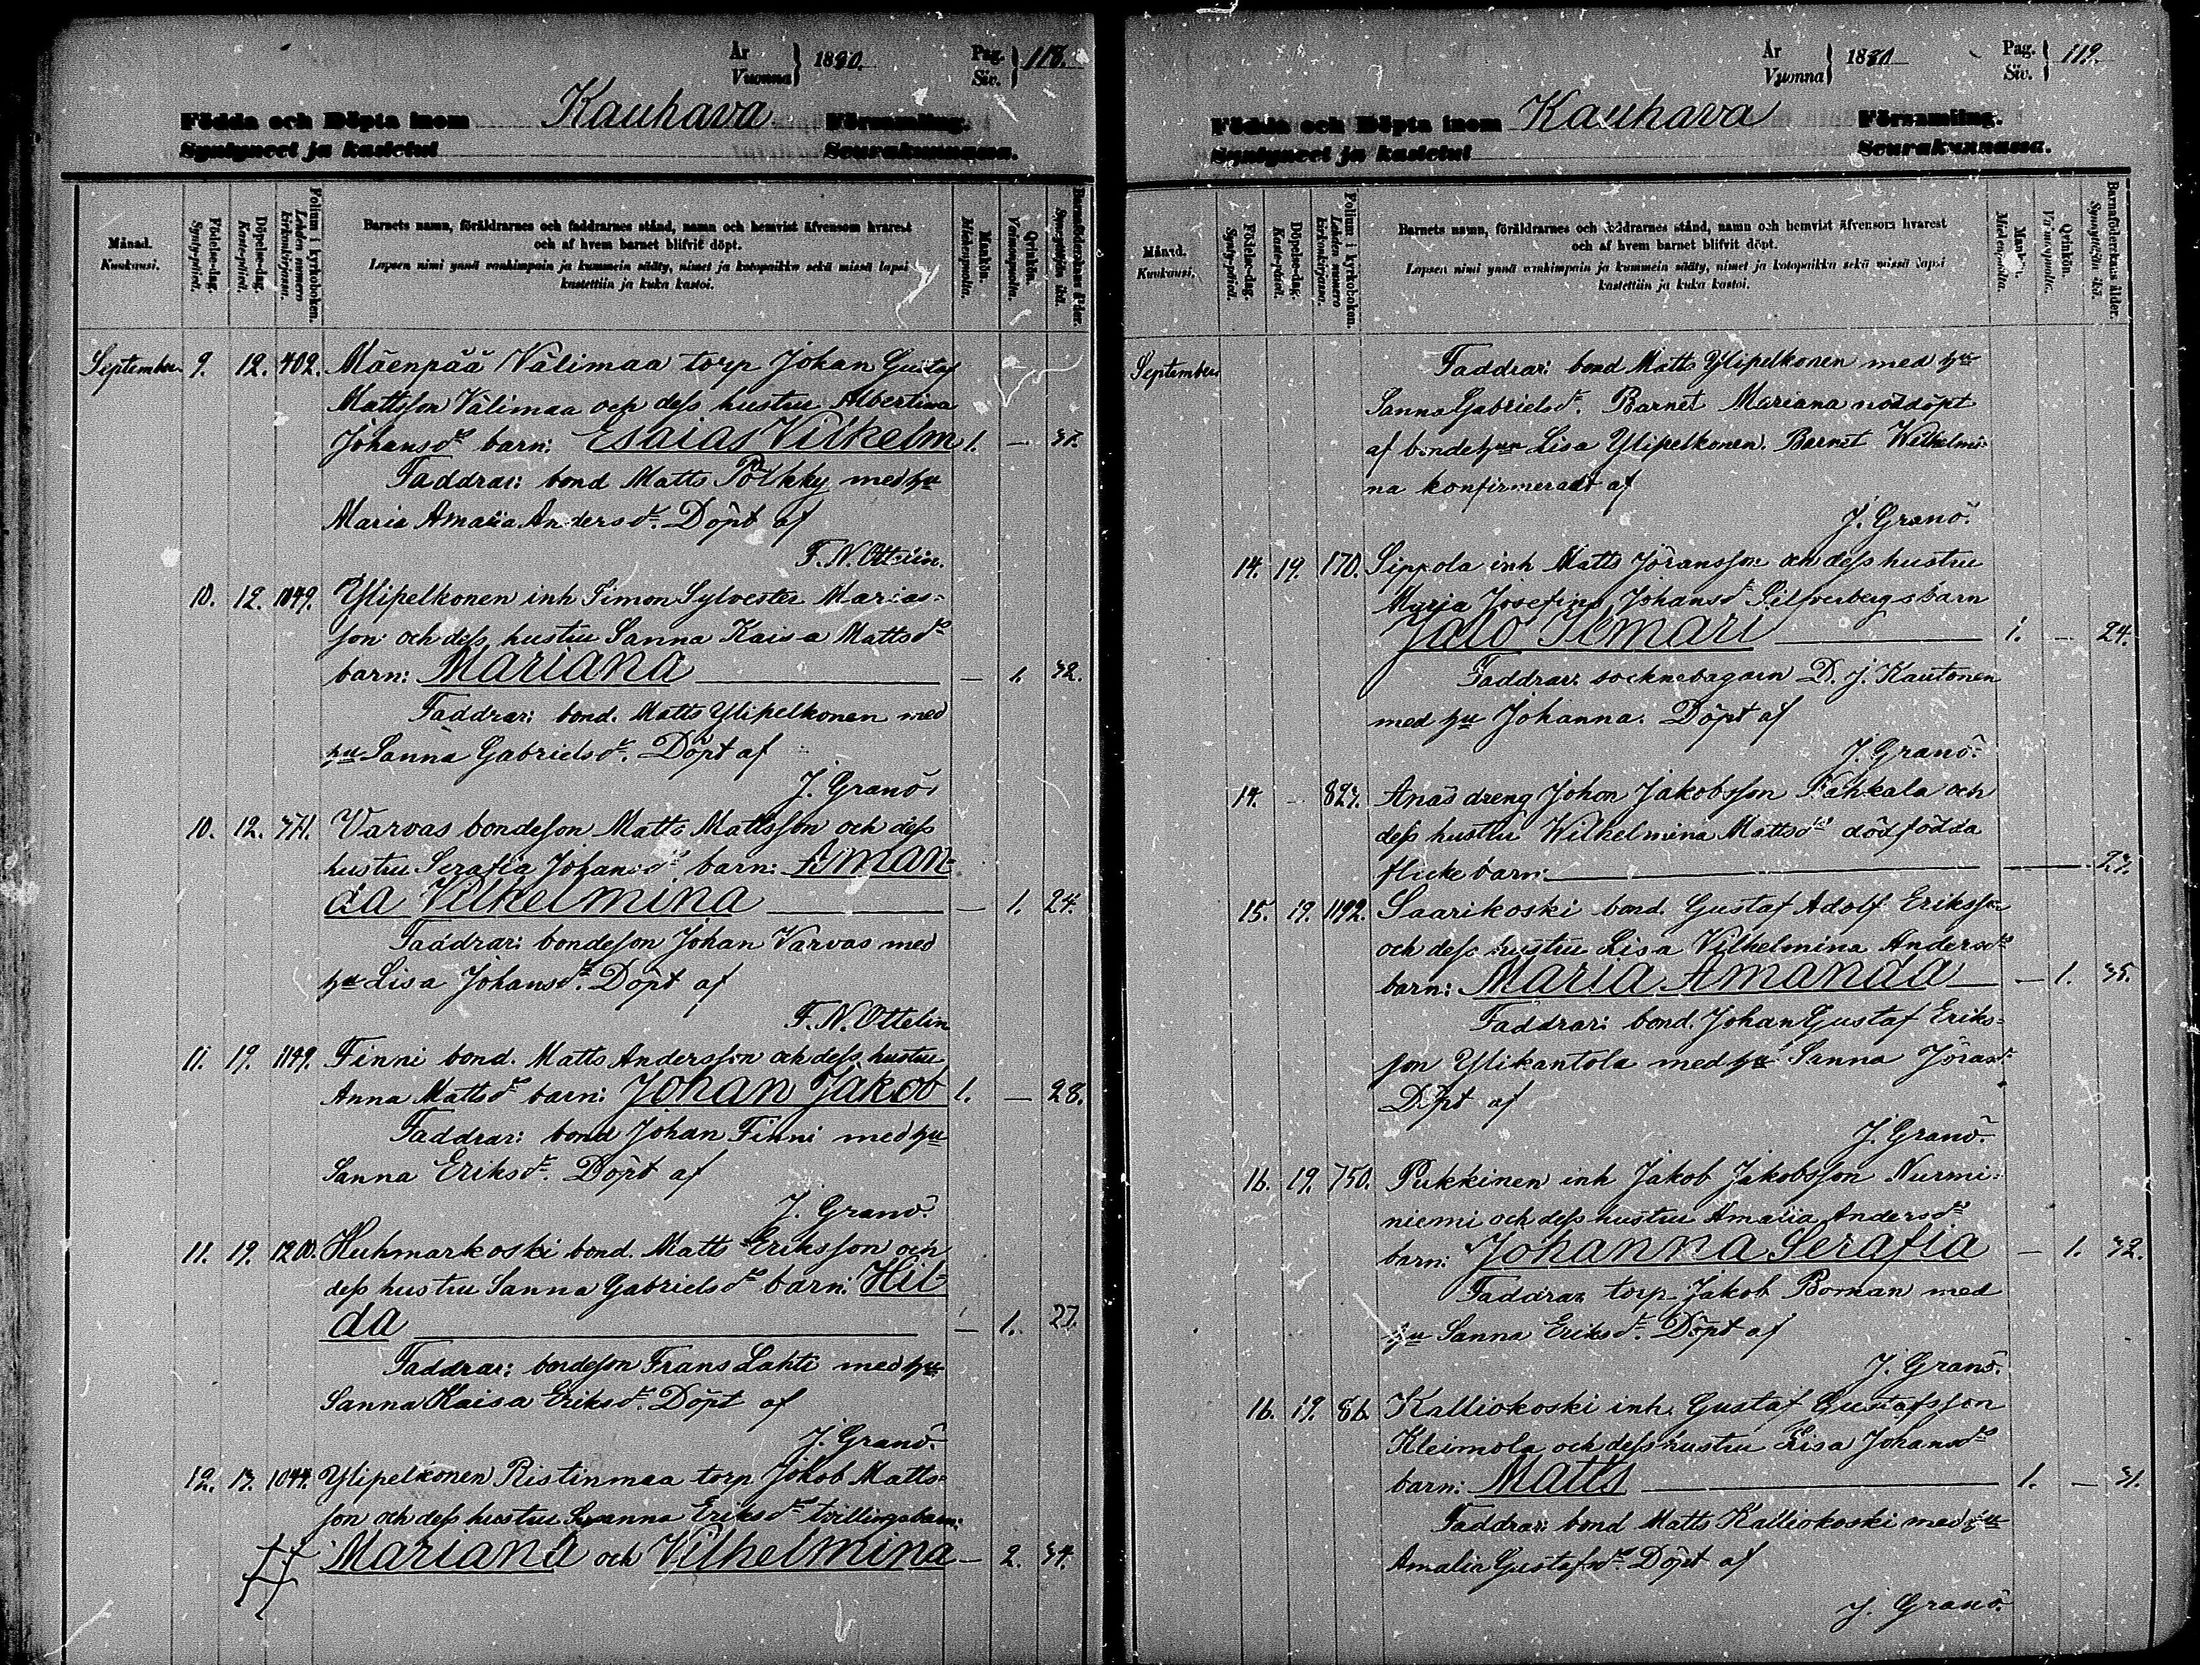 År
Vuonna } 1880.
Pag.
Siv. } 118.
Födda och Döpta inom Kauhava Församling.
Syntyneet ja kastetut Seurakunnassa.
Månad.
Kuukausi.
Födelse-dag.
Synty-päivä.
Döpelse-dag.
Kaste-päivä.
Folium i kyrkoboken.
Lehden numero kirkonkirjassa.
Barnets namn, föräldrarnes och faddrarnes stånd, namn och hemvist äfvensom hvarest
och af hvem barnet blifvit döpt.
Lapsen nimi ynnä vanhimpain ja kummein sääty, nimet ja kotopaikka sekä missä lapsi
kastettiin ja kuka kastoi.
Mankön.
Miehenpuolia.
Qvinkön.
Vaimonpuolia.
Barnaföderskans ålder.
Synnyttäjän ikä.
September 9. 12. 402. Mäenpää Välimaa torp Johan Gustaf
Mattsson Välimaa och dess hustru Albertina
Johansdr barn: Esaias Vilhelm 1. —
Faddrar: bond Matts Pölkky med hu
Maria Amalia Andersdr. Döpt af
F. N. Ottelin.
10. 12. 1049. Ylipelkonen inh Simon Sylvester Marias-
son och dess hustru Sanna Kaisa Mattsdr
barn: Mariana — 1. 32.
Faddrar: bond. Matts Ylipelkonen med
hu Sanna Gabrielsdr. Döpt af
J. Granö.
10. 12. 371. Varvas bondeson Matts Mattsson och dess
hustru Serafia Johansdr barn: Aman-
da Vilhelmina — 1. 24.
Faddrar: bondeson Johan Varvas med
hu Lisa Johansdr. Döpt af
F. N. Ottelin
11. 19. 1149. Finni bond. Matts Andersson och dess hustru
Anna Mattsdr barn: Johan Jakob 1. — 28.
Faddrar: bond Johan Finni med hu
Sanna Eriksdr. Döpt af
J. Granö.
11. 19. 1200. Huhmarkoski bond. Matts Eriksson och
dess hustru Sanna Gabrielsdr barn: Hil-
da — 1. 27.
Faddrar: bondeson Frans Lahti med hu
Sanna Kaisa Eriksdr. Döpt af
J. Granö.
12. 13. 1044. Ylipelkonen Ristinmaa torp Jakob Matts-
son och dess hustru Susanna Eriksdr tvillingsbarn:
Mariana och Vilhelmina — 2. 34.
År
Vuonna } 1880
Pag.
Siv. } 119.
Födda och Döpta inom Kauhava Församling.
Syntyneet ja kastetut Seurakunnassa.
Månad.
Kuukausi.
Födelse-dag.
Synty-päivä.
Döpelse-dag.
Kaste-päivä.
Folium i kyrkoboken.
Lehden numero kirkonkirjassa.
Barnets namn, föräldrarnes och faddrarnes stånd, namn och hemvist äfvensom hvarest
och af hvem barnet blifvit döpt.
Lapsen nimi ynnä vanhimpain ja kummein sääty, nimet ja kotopaikka sekä missä lapsi
kastettiin ja kuka kastoi.
Mankön.
Miehenpuolia.
Qvinkön.
Vaimonpuolia.
Barnaföderskans ålder.
Synnyttäjän ikä.
September Faddrar: bond Matts Ylipelkonen med hu
Sanna Gabrielsdr. Barnet Mariana nöddöpt
af bondehun Lisa Ylipelkonen. Barnet Wilhelmi-
na konfirmeradt af
J. Granö.
14. 19. 170. Sippola inh Matts Jöransson och dess hustru
Maria Josefina Johansdr Silfverbergs barn
Jalo Ilmari 1. — 24.
Faddrar: socknebagarn D. J. Kautonen
med hu Johanna. Döpt af
J. Granö.
14. — 823. Anäs dreng Johan Jakobsson Fahkala och
dess hustru Wilhelmina Mattsdr dödfödda
flicke barn: 23.
15. 19. 1192. Saarikoski bond. Gustaf Adolf Eriksson
och dess hustru Lisa Vilhelmina Andersdr
barn: Maria Amanda — 1. 35.
Faddrar: bond. Johan Gustaf Eriks-
son Ylikantola med hu Sanna Jöransdr
Döpt af
J. Granö.
16. 19. 750. Pukkinen inh Jakob Jakobsson Nurmi-
niemi och dess hustru Amalia Andersdr
barn: Johanna Serafia — 1. 32.
Faddrar torp Jakob Boman med
hu Sanna Eriksdr. Döpt af
J. Granö.
16. 19. 86. Kalliokoski inh. Gustaf Gustafsson
Kleimola och dess hustru Lisa Johansdr
barn: Matts 1. — 31.
Faddrar: bond Matts Kalliokoski med hu
Amalia Gustafsdr Döpt af
J. Granö.